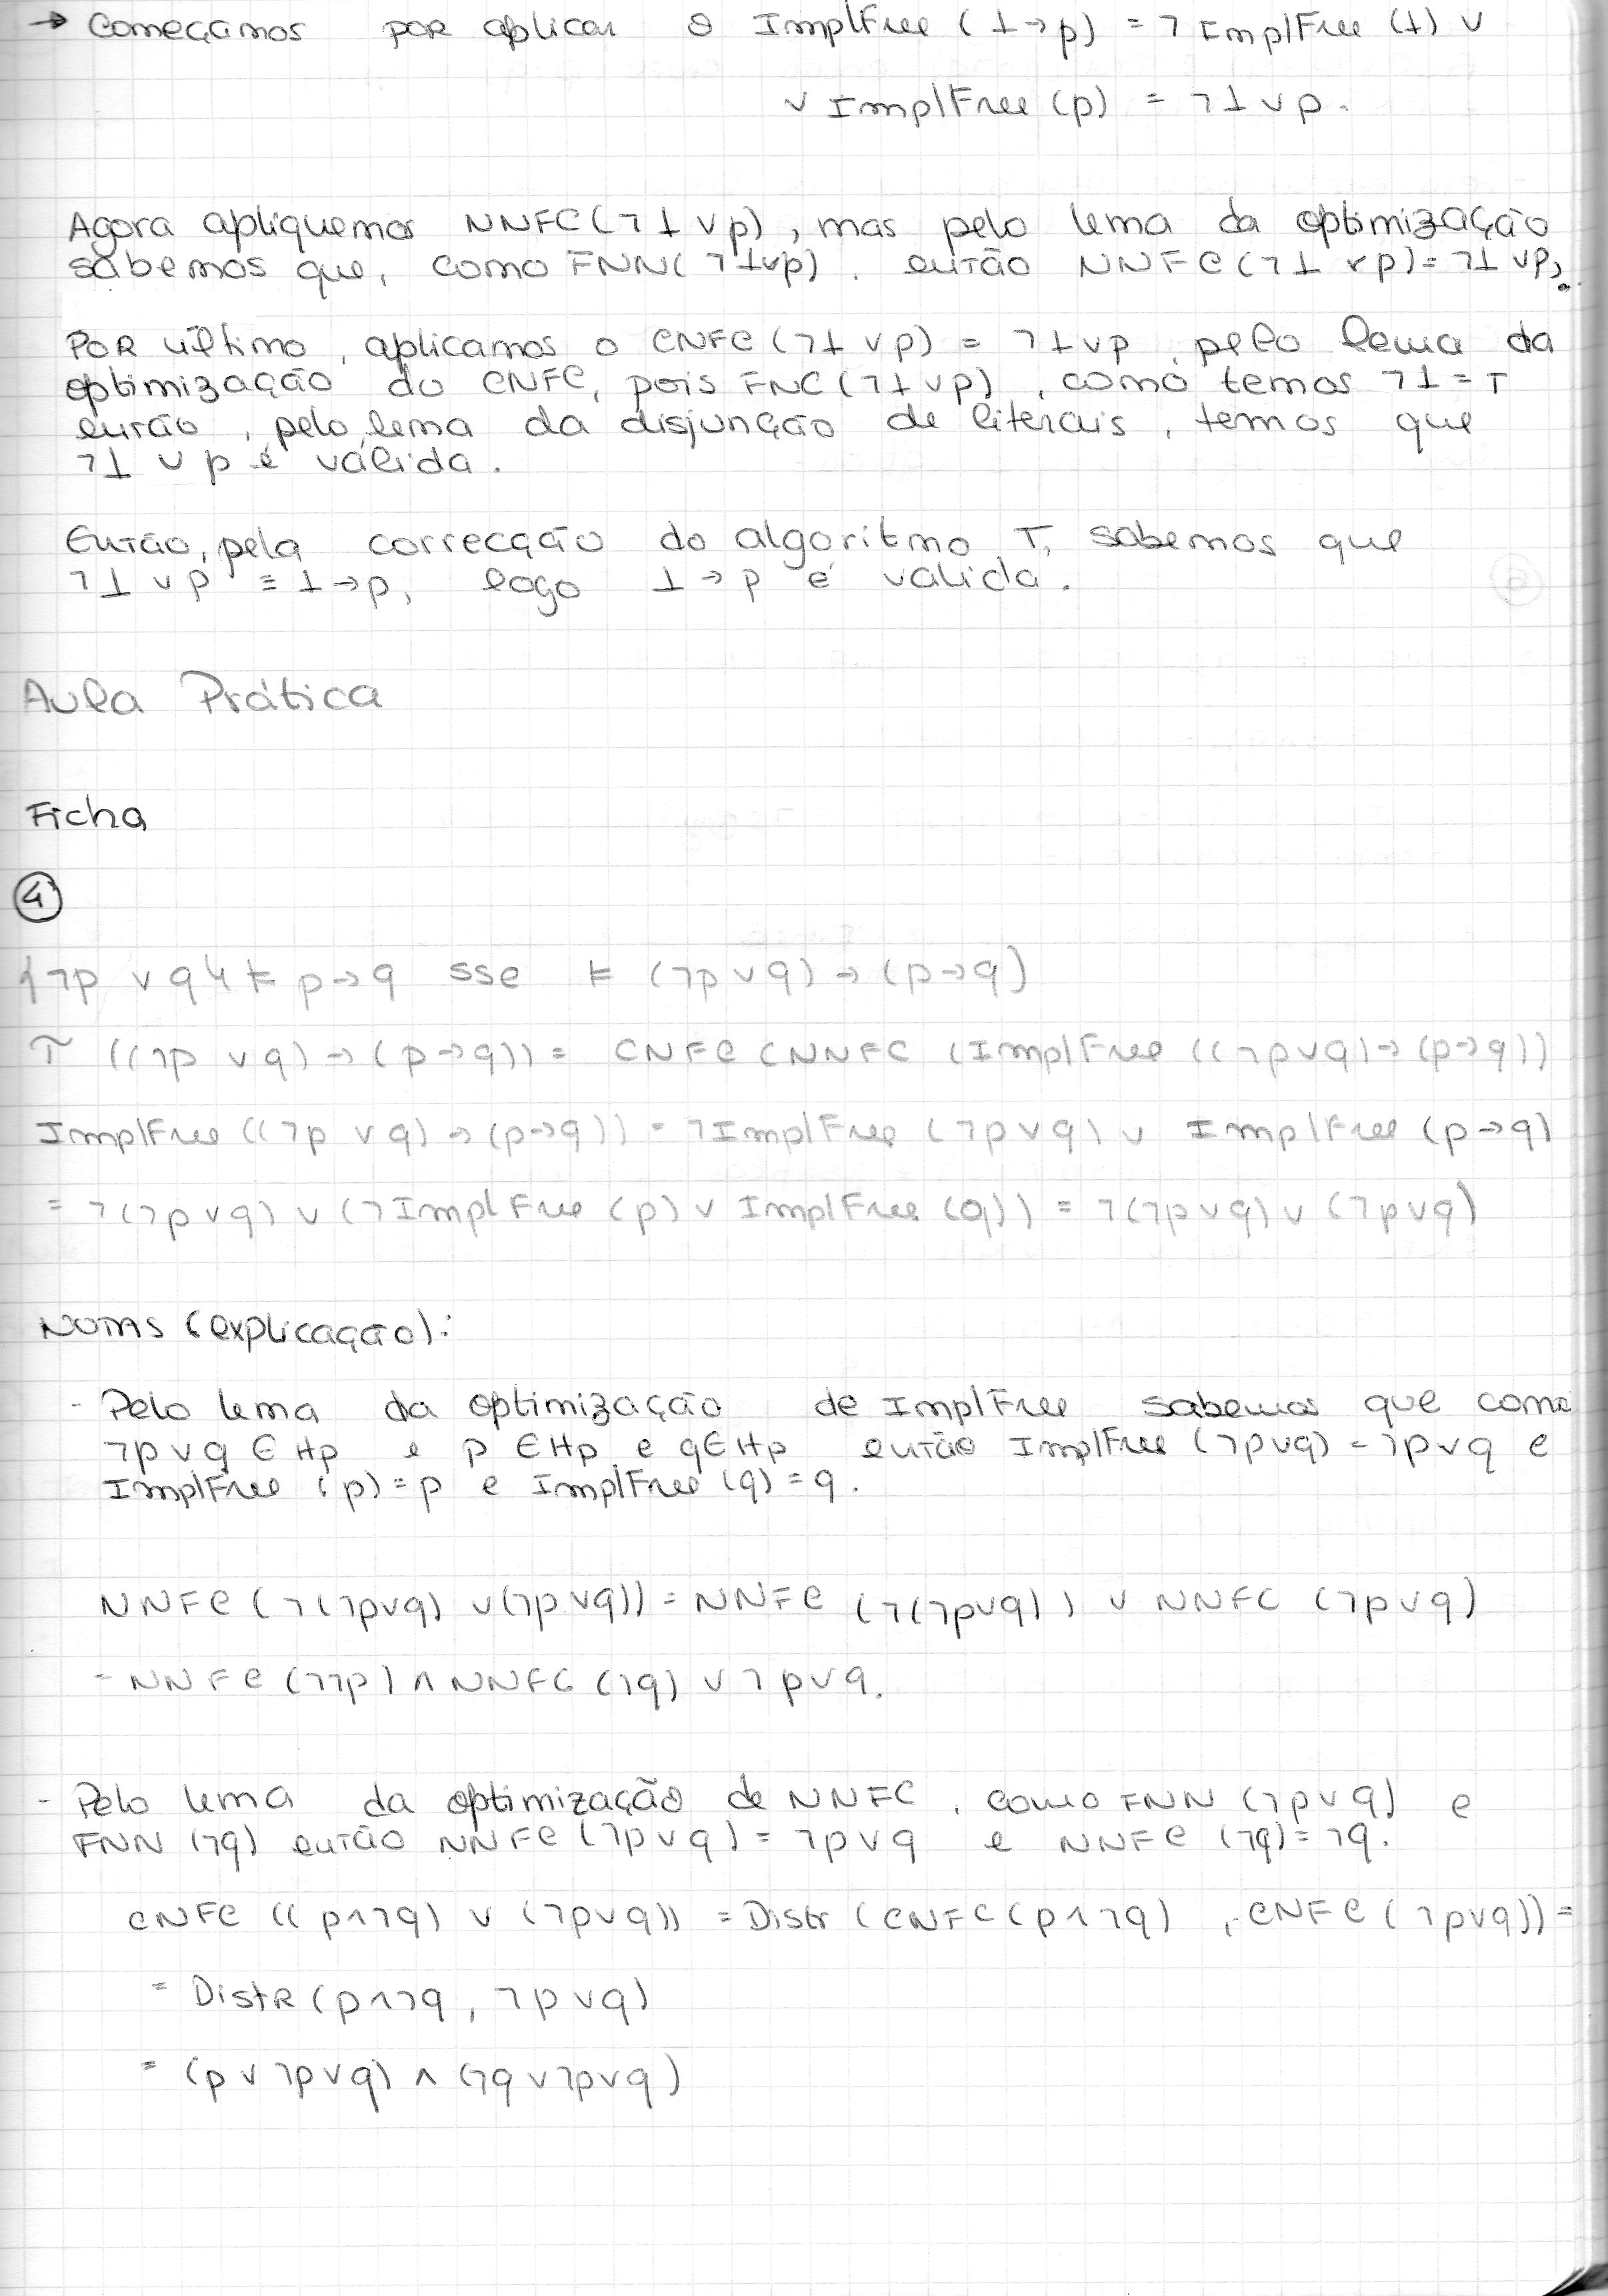 → Começamos por aplicar o ImplFree (⊥→p) = ¬ImplFree (⊥) ∨
∨ ImplFree (p) = ¬⊥ ∨ p.
Agora apliquemos NNFC(¬⊥ ∨ p), mas pelo lema da optimização
sabemos que, como FNN(¬⊥∨p), então NNFC(¬⊥ ∨ p) = ¬⊥ ∨ p.
Por último, aplicamos o CNFC(¬⊥ ∨ p) = ¬⊥∨p, pelo lema da
optimização do CNFC, pois FNC(¬⊥∨p), como temos ¬⊥ = T
então, pelo lema da disjunção de literais, temos que
¬⊥ ∨ p é válida.
Então, pela correcção do algoritmo T, sabemos que
¬⊥ ∨ p ≡ ⊥→p, logo ⊥→p é válida.
Aula Prática
Ficha
4
{¬p ∨ q} ⊨ p→q sse ⊨ (¬p∨q) → (p→q)
T ((¬p ∨ q) → (p→q)) = CNFC (NNFC (ImplFree ((¬p∨q) → (p→q))
ImplFree ((¬p ∨ q) → (p→q)) = ¬ImplFree (¬p∨q) ∨ ImplFree (p→q)
= ¬(¬p∨q) ∨ (¬ImplFree (p) ∨ ImplFree (q)) = ¬(¬p∨q) ∨ (¬p∨q)
Notas (explicação):
- Pelo lema da optimização de ImplFree sabemos que como
¬p∨q ∈ Hp e p ∈ Hp e q ∈ Hp então ImplFree (¬p∨q) = ¬p∨q e
ImplFree (p) = p e ImplFree (q) = q.
NNFC (¬(¬p∨q) ∨(¬p∨q)) = NNFC (¬(¬p∨q)) ∨ NNFC (¬p∨q)
= NNFC (¬¬p) ∧ NNFC (¬q) ∨ ¬p∨q.
- Pelo lema da optimização de NNFC, como FNN (¬p∨q) e
FNN (¬q) então NNFC (¬p∨q) = ¬p∨q e NNFC (¬q) = ¬q.
CNFC ((p∧¬q) ∨ (¬p∨q)) = Distr (CNFC(p∧¬q), CNFC(¬p∨q)) =
= Distr (p∧¬q, ¬p∨q)
= (p∨¬p∨q) ∧ (¬q∨¬p∨q)